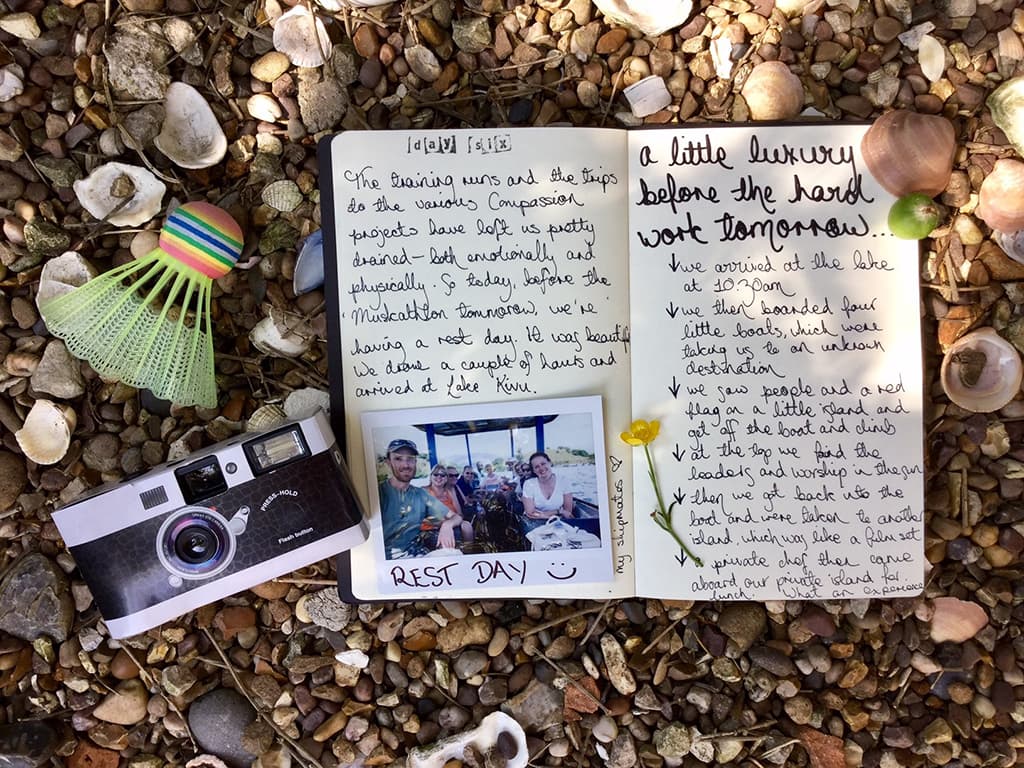 day six
The training runs and the trips
to the various Compassion
projects have left us pretty
drained - both emotionally and
physically. So today, before the
'Muskathlon tomorrow, we're
having a rest day. It was beautiful
We drove a couple of hours and
arrived at Lake Kivu.
REST DAY
my shiphotos
a little luxury
before the hard
work tomorrow...
↓ we arrived at the lake
at 10.30am
↓ we then boarded four
little boats, which were
taking us to an unknown
destination
↓ we saw people and a red
flag on a little island and
get off the boat and climb
↓ at the top we find the
leaders and worship in the sun
↓ then we got back into the
boat and were taken to another
island, which was like a film set
↓ private chef then came
aboard our private island for
lunch. What an experience
PRESS-HOLD
Flash button